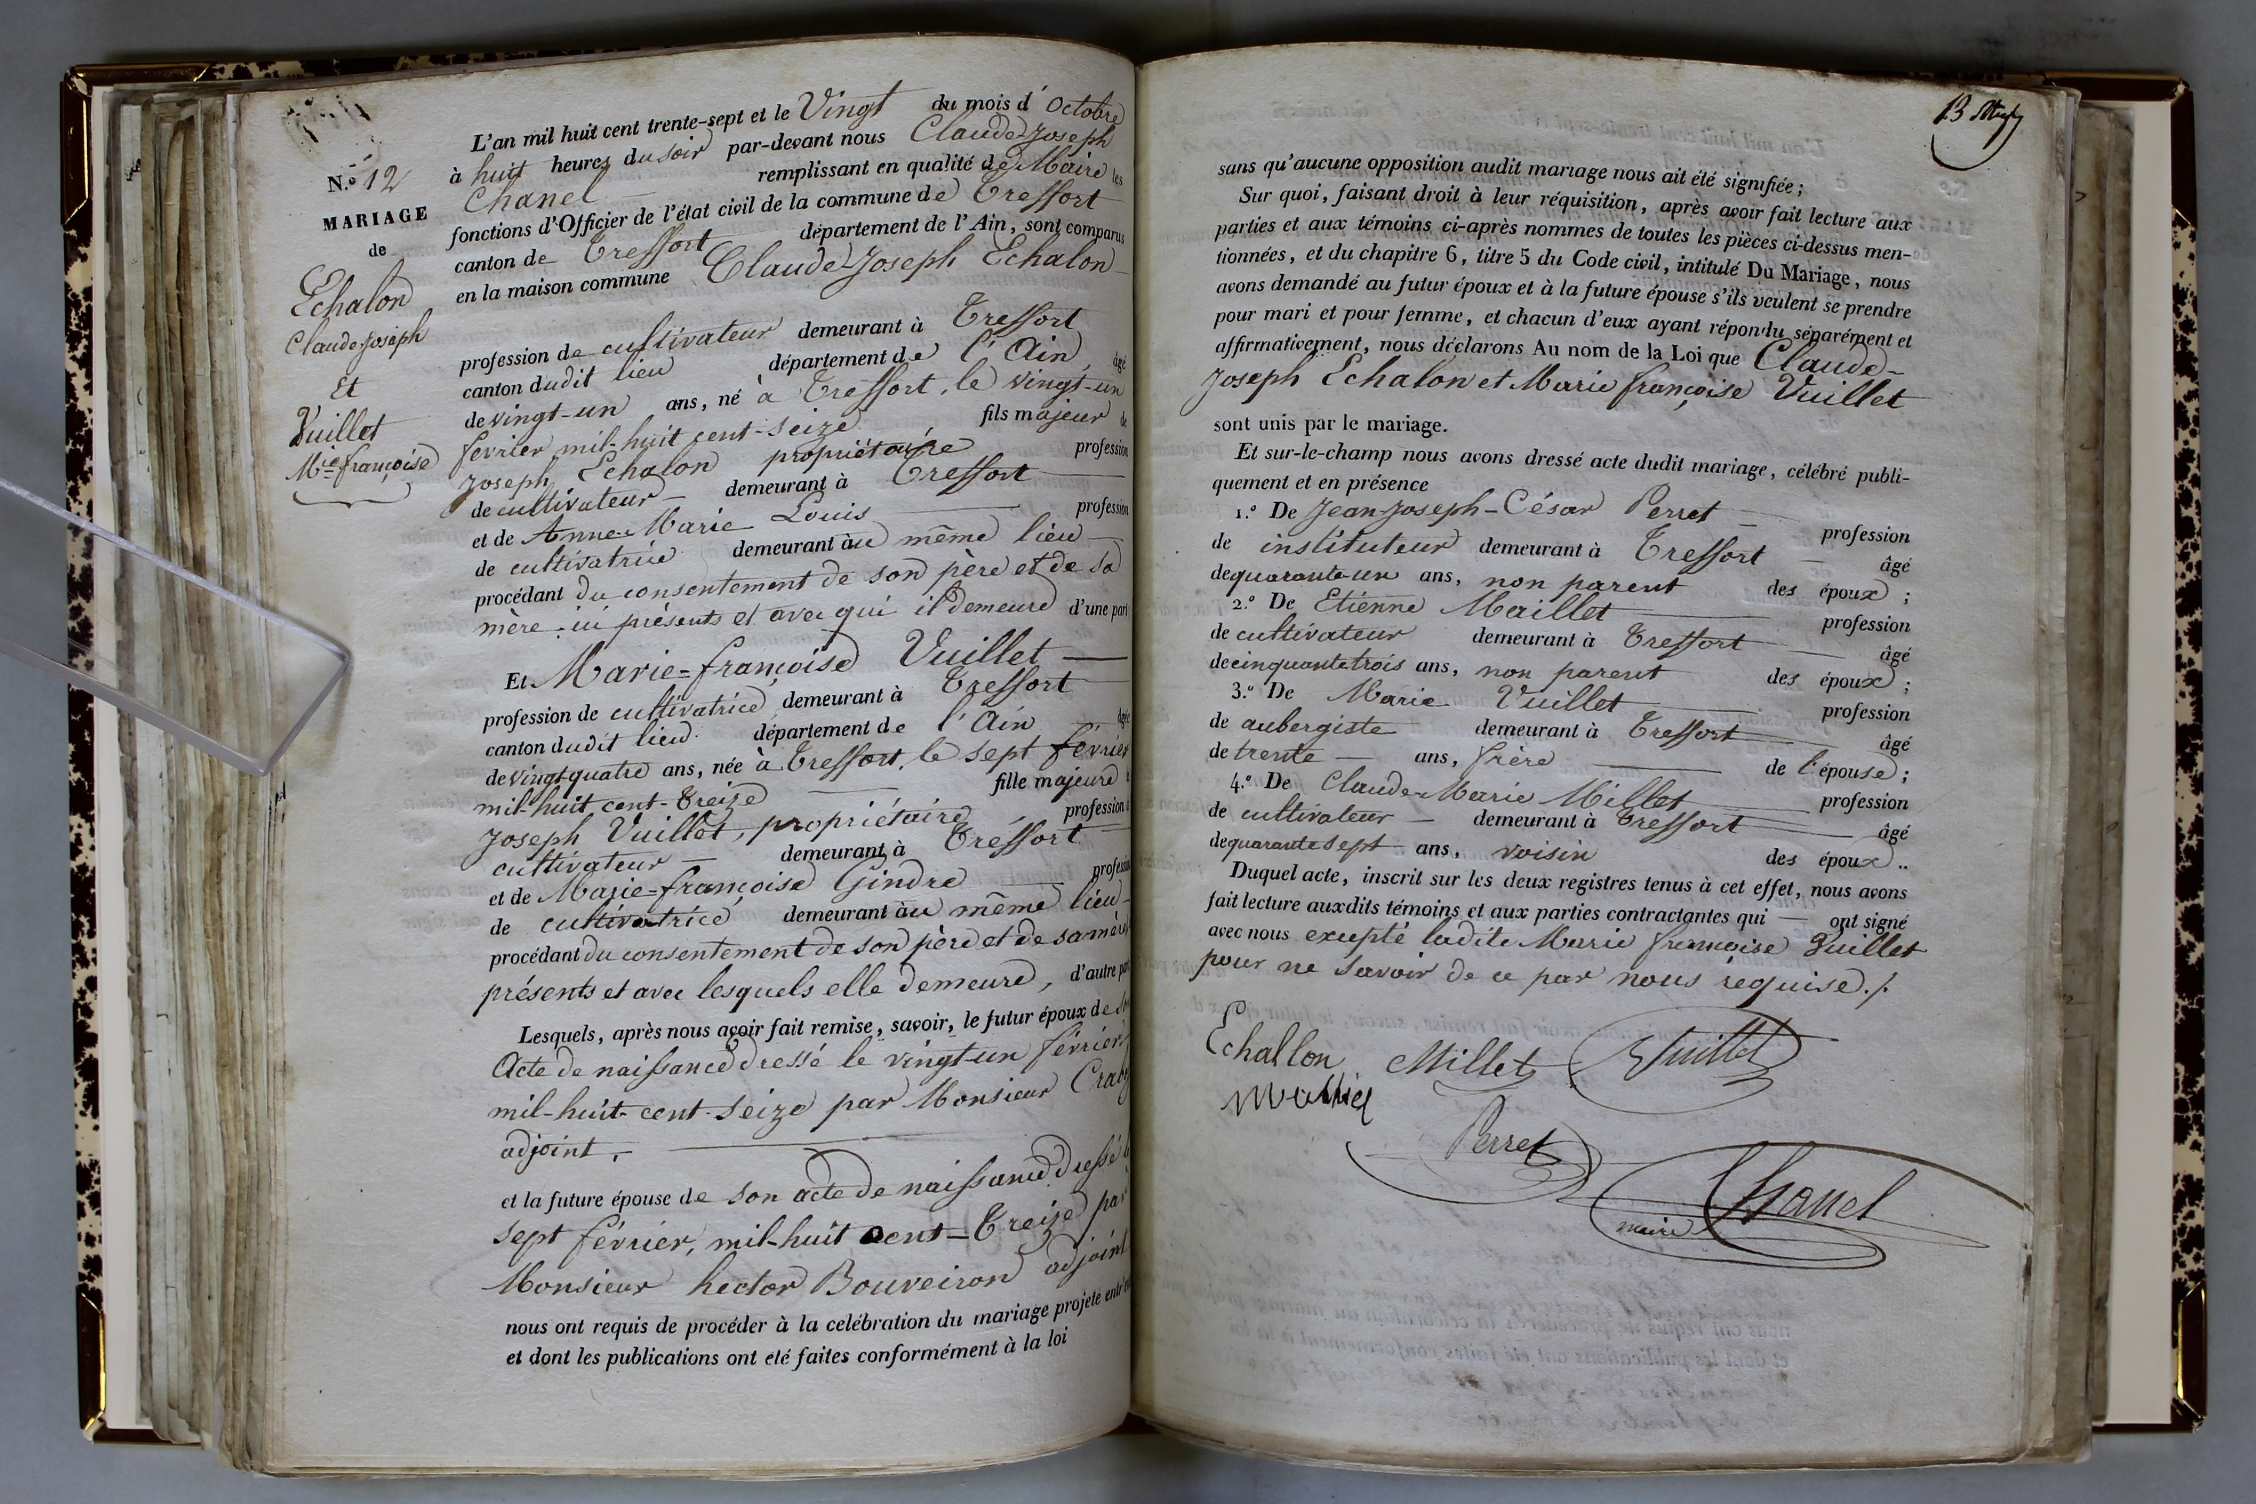 N.º 12
MARIAGE
de
Echalon
Claude-Joseph
Et
Vuillet
Mie françoise
L'an mil huit cent trente-sept et le Vingt du mois d'octobre
à huit heures du soir par-devant nous Claude-Joseph
Chanel remplissant en qualité de Maire les
fonctions d'Officier de l'état civil de la commune de Treffort
canton de Treffort département de l'Ain, sont comparus
en la maison commune Claude-Joseph Echalon
profession de cultivateur demeurant à Treffort
canton dudit lieu département de l'Ain, âgé
de vingt-un ans, né à Treffort, le vingt-un
fevrier mil-huit cent-seize fils majeur de
Joseph Echalon propriétaire profession
de cultivateur demeurant à Treffort
et de Anne-Marie Louis profession
de cultivatrice demeurant au même lieu
procédant du consentement de son père et de sa
mère ici présents et avec qui il demeure d'une part
Et Marie-françoise Vuillet
profession de cultivatrice demeurant à Treffort
canton dudit lieu département de l'Ain âgée
de vingt-quatre ans, née à Treffort, le sept février
mil-huit cent-treize fille majeure
Joseph Vuillet, propriétaire profession
cultivateur demeurant à Treffort
et de Marie-françoise Gindre profession
de cultivatrice demeurant au même lieu
procédant du consentement de son père et de sa mère
présents et avec lesquels elle demeure, d'autre part
Lesquels, après nous avoir fait remise, savoir, le futur époux de son
Acte de naissance dressé le vingt-un février
mil-huit-cent-seize par Monsieur
adjoint,
et la future épouse de son acte de naissance dressé le
sept février, mil-huit cent-treize par
Monsieur hector Bouveiron adjoint
nous ont requis de procéder à la celébration du mariage projeté entr'eux
et dont les publications ont été faites conformément à la loi
13
sans qu'aucune opposition audit mariage nous ait été signifiée;
Sur quoi, faisant droit à leur réquisition, après avoir fait lecture aux
parties et aux témoins ci-après nommes de toutes les pièces ci-dessus men-
tionnées, et du chapitre 6, titre 5 du Code civil, intitulé Du Mariage, nous
avons demandé au futur époux et à la future épouse s'ils veulent se prendre
pour mari et pour femme, et chacun d'eux ayant répondu séparément et
affirmativement, nous déclarons Au nom de la Loi que Claude-
Joseph Echalon et Marie françoise Vuillet
sont unis par le mariage.
Et sur-le-champ nous avons dressé acte dudit mariage, célébré publi-
quement et en présence
1.º De Jean-Joseph-César Perret profession
de instituteur demeurant à Treffort âgé
de quarante-un ans, non parent des époux;
2.º De Etienne Maillet profession
de cultivateur demeurant à Treffort âgé
de cinquante trois ans, non parent des époux;
3.º De Marie Vuillet profession
de aubergiste demeurant à Treffort âgé
de trente ans, frère de l'épouse;
4.º De Claude-Marie Millet profession
de cultivateur demeurant à Treffort âgé
de quarante sept ans, voisin des époux..
Duquel acte, inscrit sur les deux registres tenus à cet effet, nous avons
fait lecture auxdits témoins et aux parties contractantes qui ont signé
avec nous excepté ladite Marie françoise Vuillet
pour ne savoir de ce par nous requise./.
Echallon Millet Vuillet
Perret
Chanel
maire